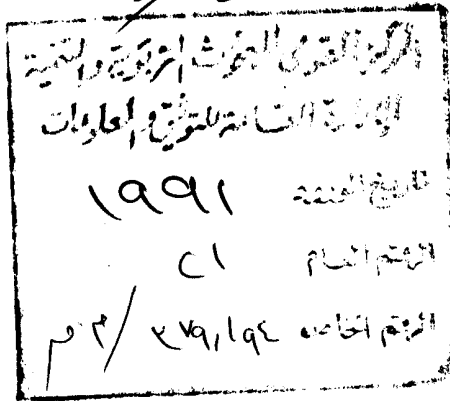 المركز القومى للبحوث التربوية والتنمية
الإدارة العامة للتوثيق والمعلومات
تاريخ ١٩٩١
الرقم العام ٢١
الرقم الخاص ٣٧٩,١٩٤ / ٣ م